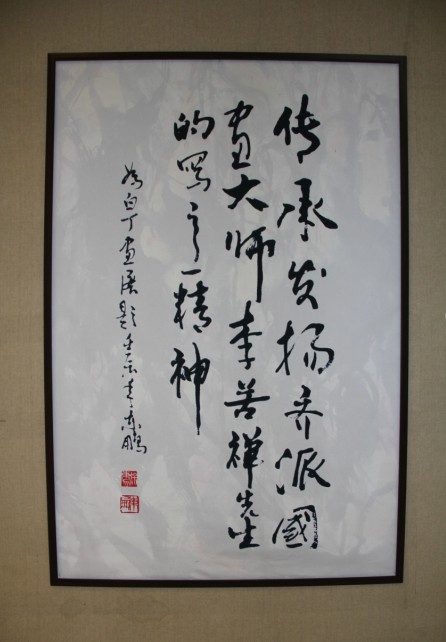 传承发扬齐派國
画大师李苦禅先生
的写意精神
为白丁画展题 鹏